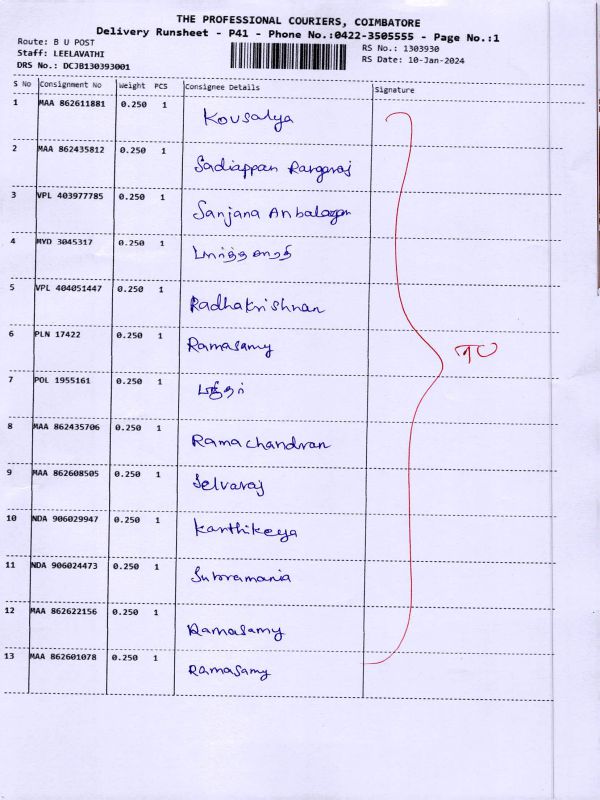 THE PROFESSIONAL COURIERS, COIMBATORE
Delivery Runsheet - P41 - Phone No.:0422-3505555 - Page No.:1
Route: B U POST
Staff: LEELAVATHI
DRS No.: DCJB130393001
RS No.: 1303930
RS Date: 10-Jan-2024
S No Consignment No Weight PCS Consignee Details Signature
1 MAA 862611881 0.250 1 Kousalya
2 MAA 862435812 0.250 1 Sadiappan Rangaraj
3 VPL 403977785 0.250 1 Sanjana Anbalagan
4 MYD 3045317 0.250 1
5 VPL 404051447 0.250 1 Radhakrishnan
6 PLN 17422 0.250 1 Ramasamy
7 POL 1955161 0.250 1
8 MAA 862435706 0.250 1 Ramachandran
9 MAA 862608505 0.250 1 Selvaraj
10 NDA 906029947 0.250 1 Karthikeya
11 NDA 906024473 0.250 1 Subramania
12 MAA 862622156 0.250 1 Ramasamy
13 MAA 862601078 0.250 1 Ramasamy